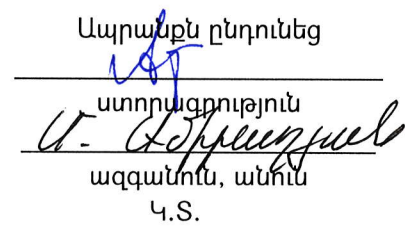 Ապրանքն ընդունեց
ստորագրություն
Ա.
ազգանուն, անուն
Կ.Տ.